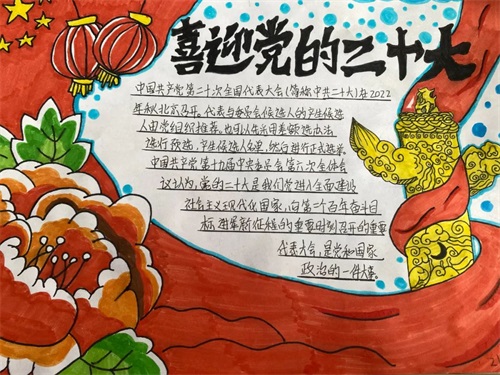 喜迎党的二十大
中国共产党第二十次全国代表大会(简称中共二十大)在2022
年秋北京召开。代表与委员会候选人的产生候选
人由党组织推荐,也可以先采用差额选办法
进行预选,产生候选人名单,然后进行正式选举
中国共产党第十九届中央委员会第六次全体会
议认为,党的二十大是我们党进入全面建设
社会主义现代化国家,向第二个百年奋斗目
标进军新征程的重要时刻召开的重要
代表大会,是党和国家
政治的一件大事。